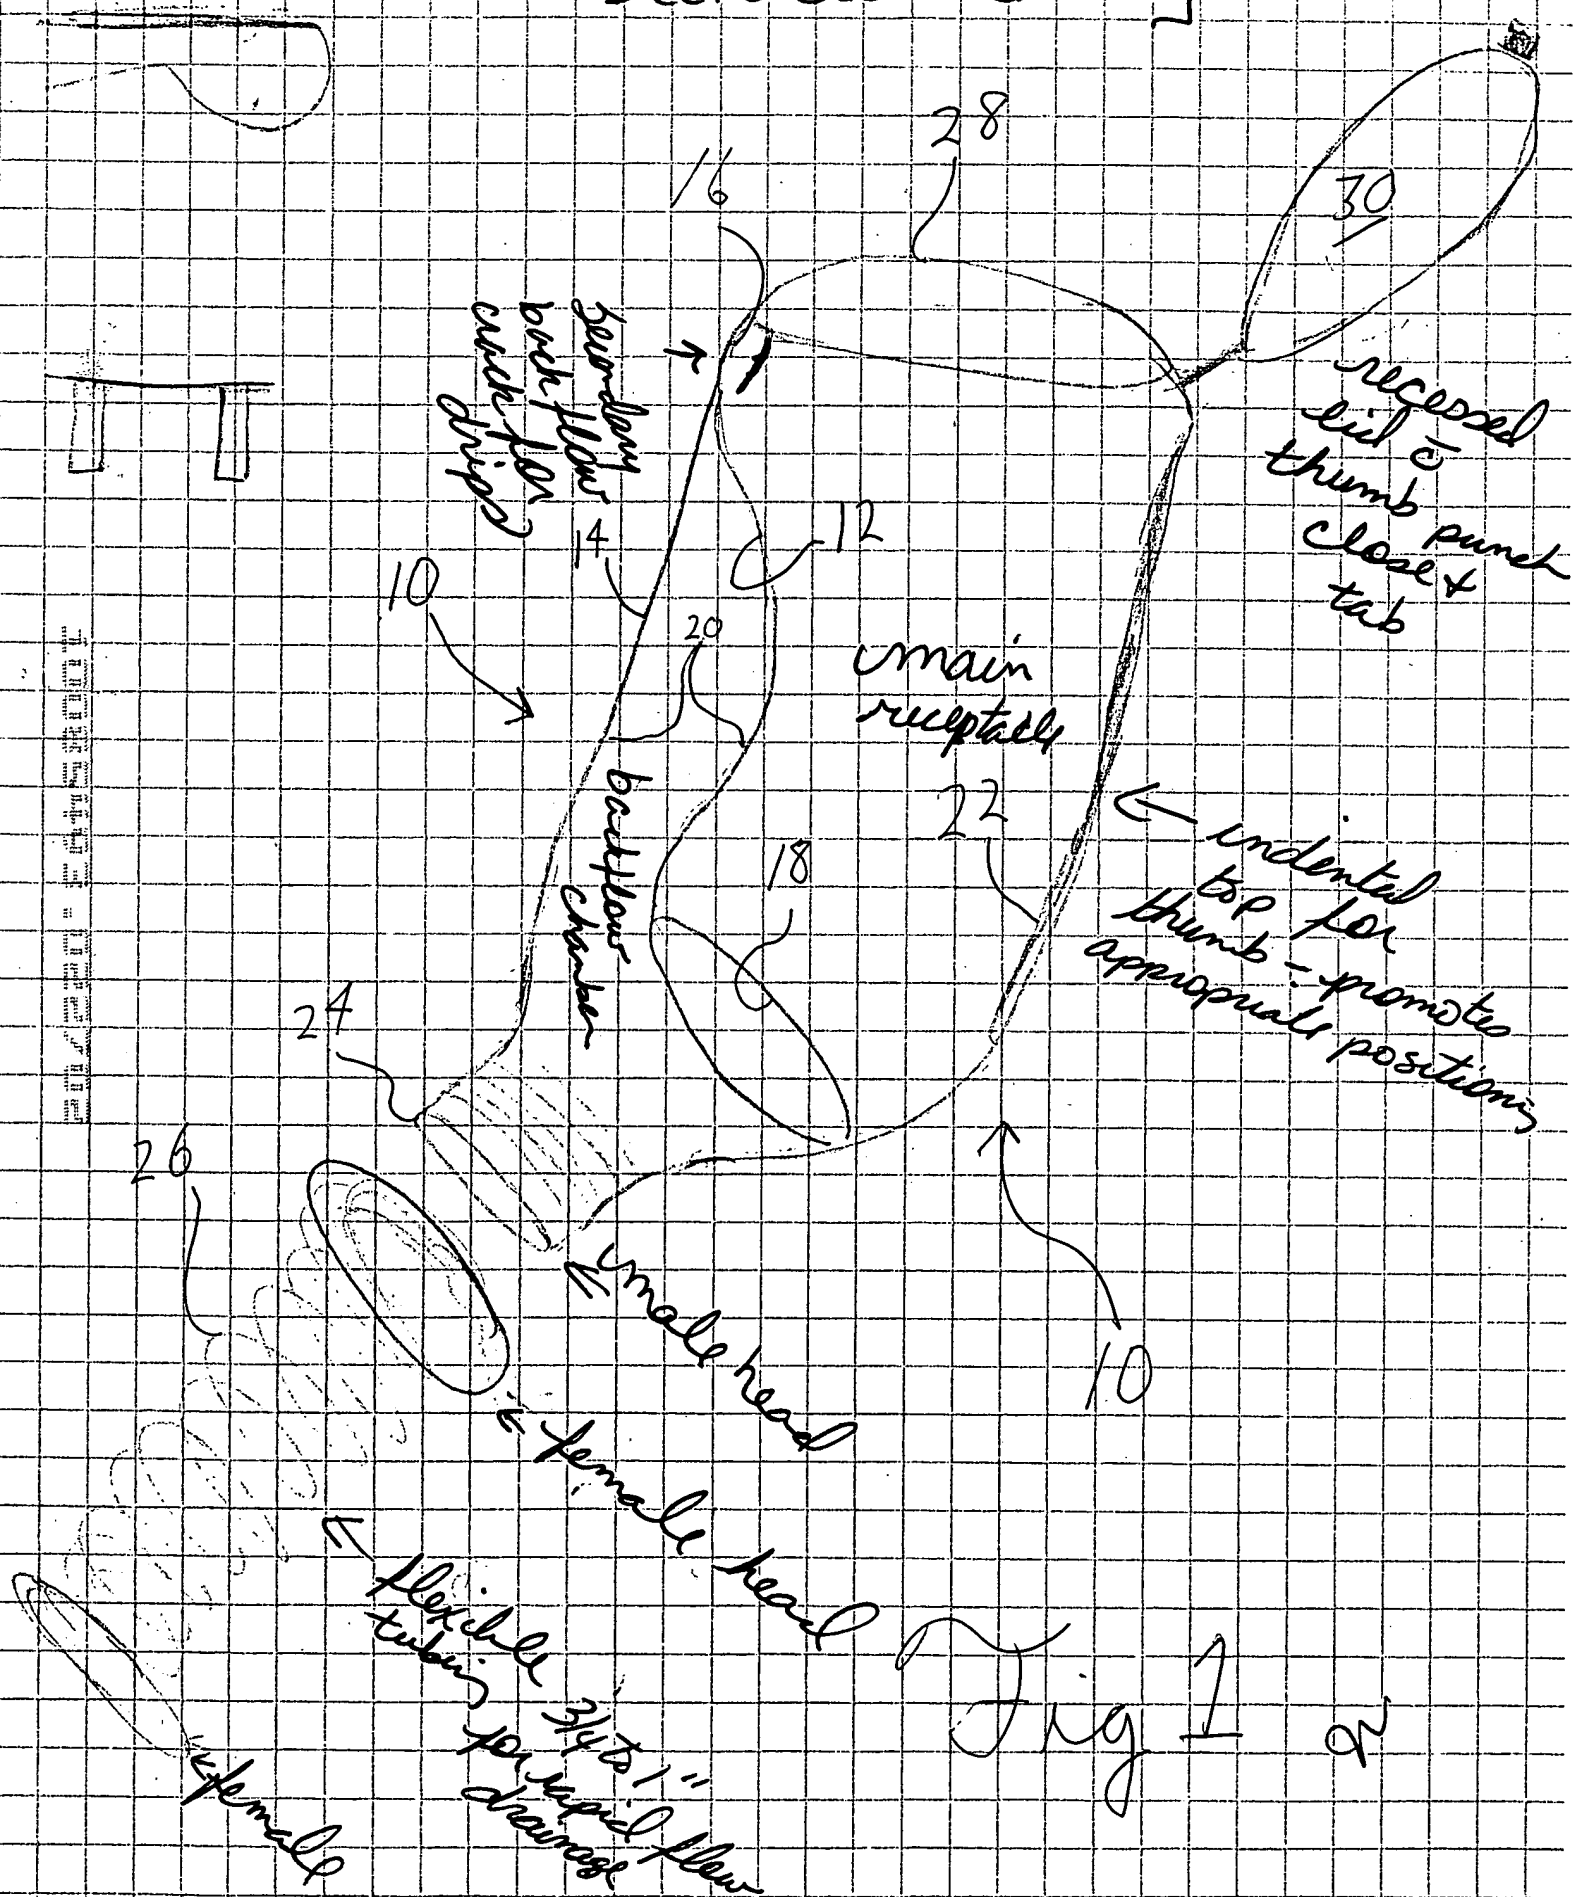 16
28
30
Secondary
back flow
drips
recessed
lid c̄
thumb punch
close &
tab
14
12
10
20
main
receptacle
22
backflow
chamber
18
indented
top for
thumb - promotes
appropriate positioning
24
26
male head
10
female head
flexible 3/4 to 1"
tubing for rapid flow
drainage
female
Fig 1